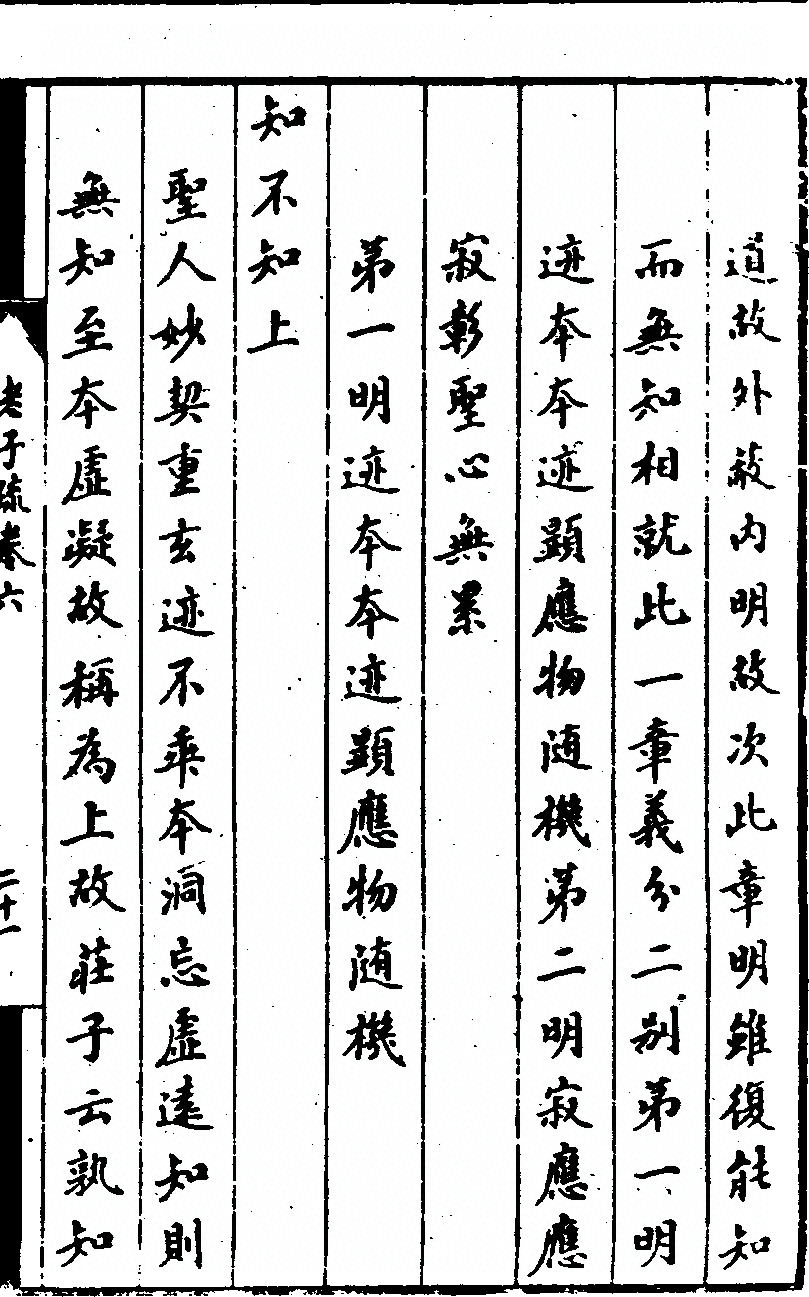 道故外敵内明故次此章明雖復能知
而無知相就此一章義分二別第一明
迹本本迹顯應物随機第二明寂應應
寂彰聖心無累
第一明迹本本迹顯應物随機
知不知上
聖人妙契重玄迹不乖本洞忘虛遠知則
無知至本虛凝故稱為上故莊子云孰知
老子疏卷六
二十一